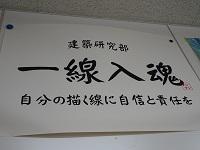 建築研究部
一線入魂
自分の描く線に自信と責任を